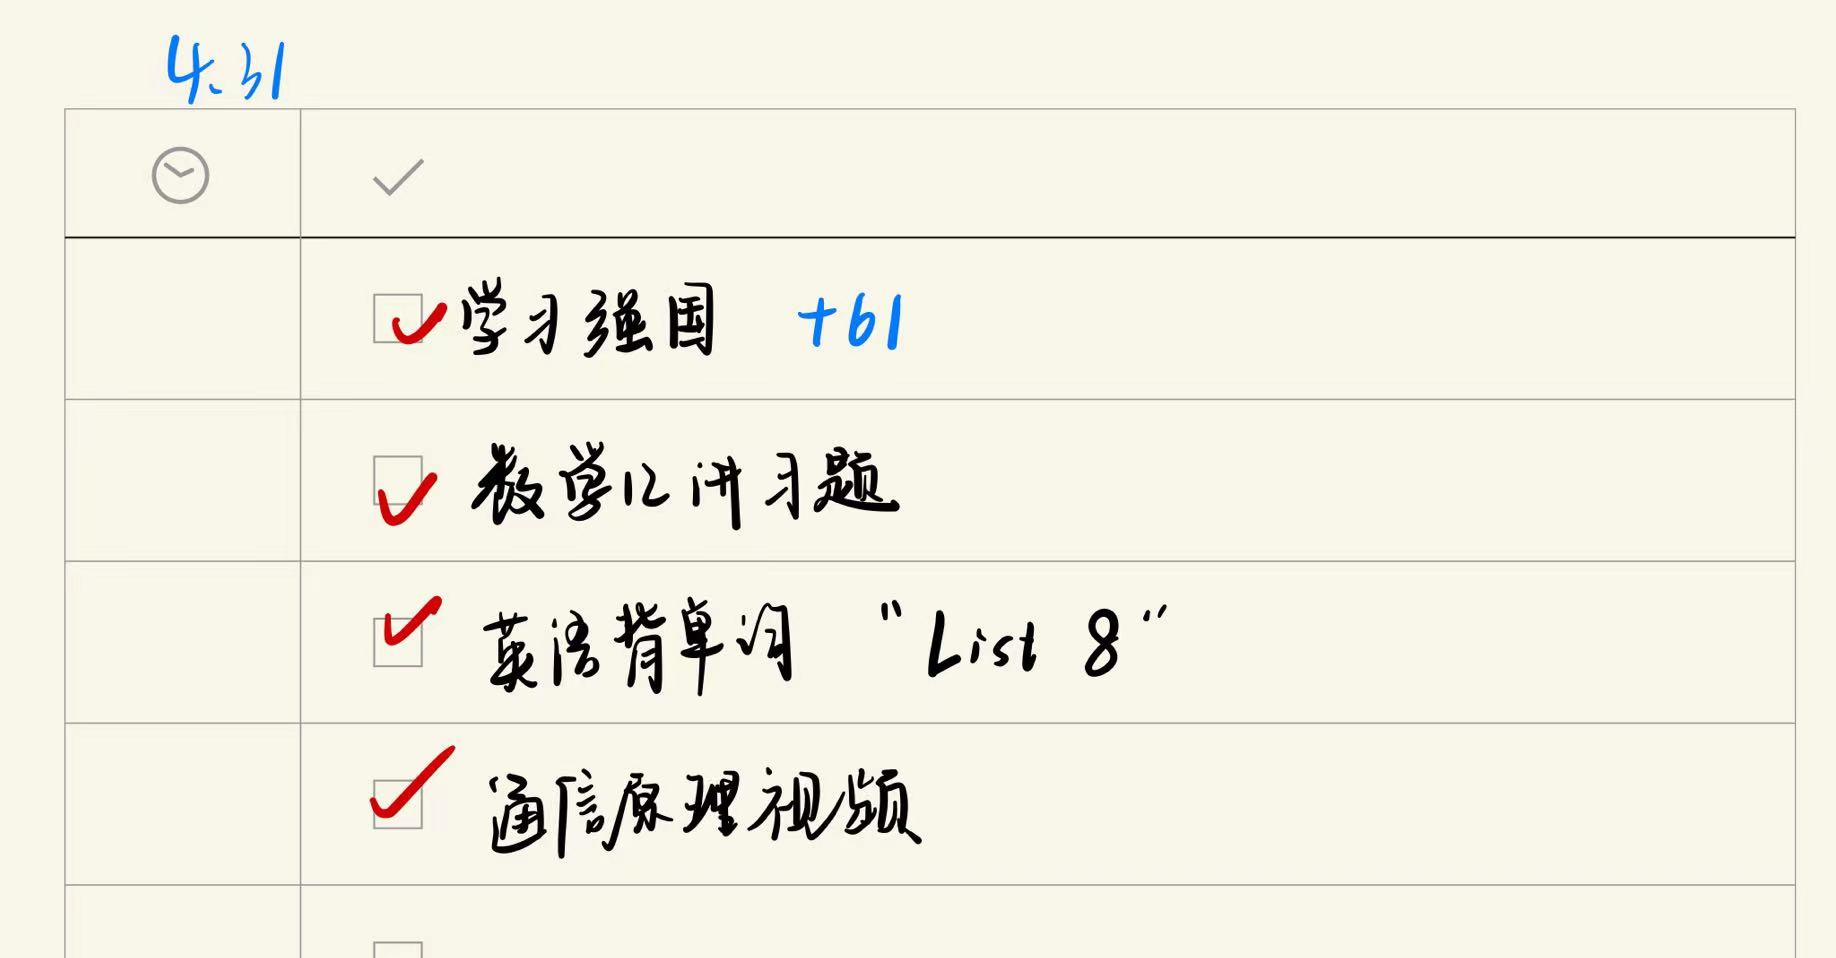 4.31
学习强国 +61
数学12讲习题
英语背单词 “List 8”
通信原理视频